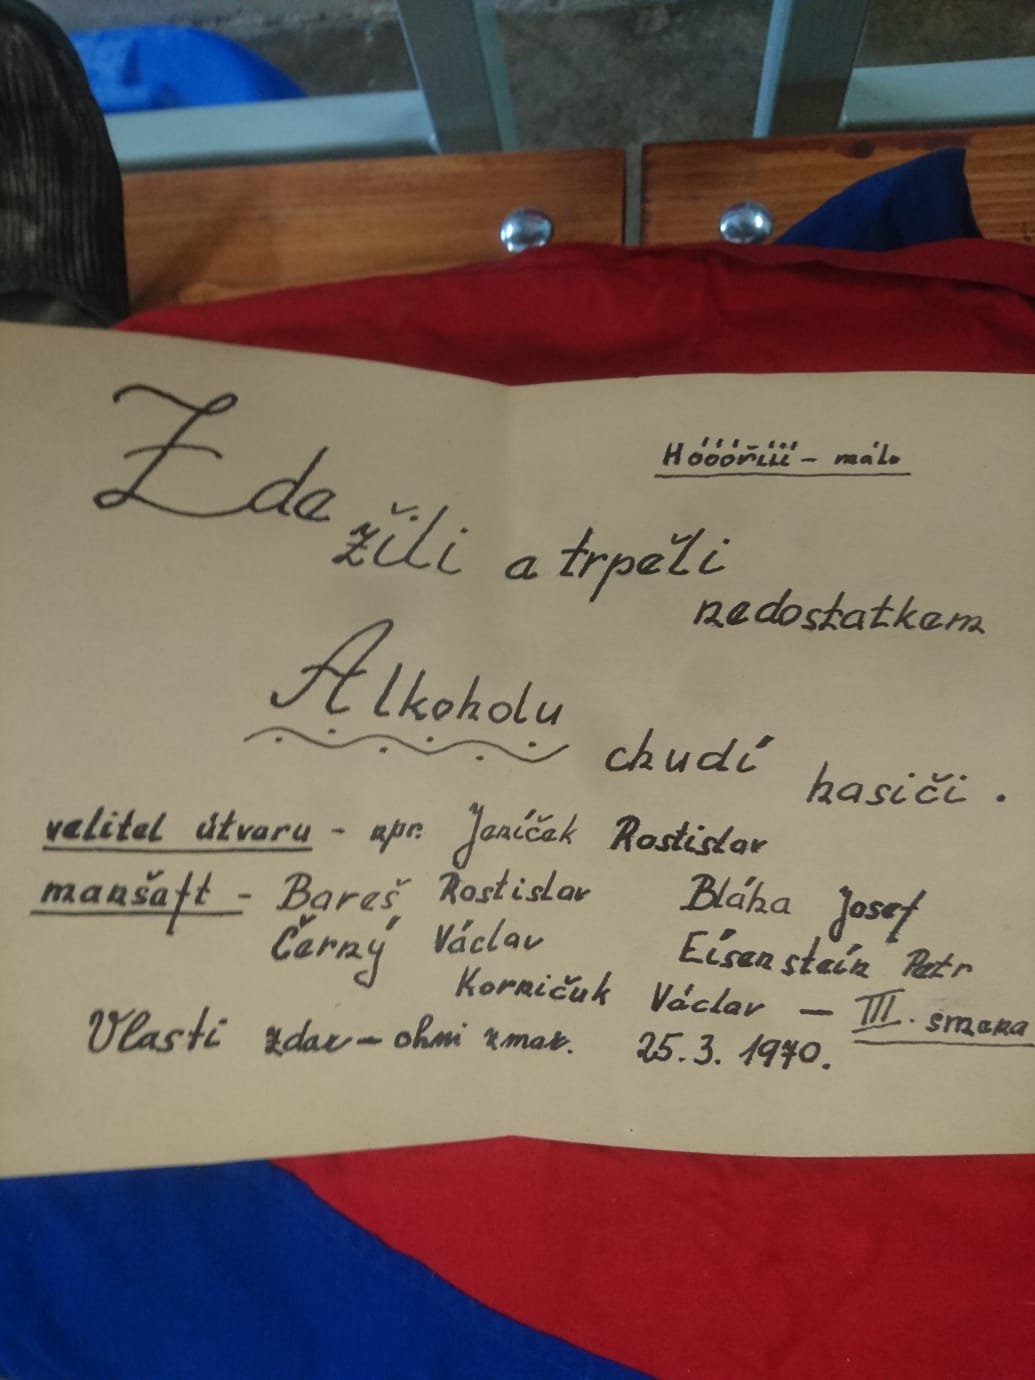 Hóóóřííí - málo
Zde
žili a trpěli
nedostatkem
Alkoholu
chudí hasiči.
velitel útvaru - npr. Janíček Rostislav
manšaft - Bareš Rostislav Bláha Josef
Černý Václav Eisenstein Petr
Korničuk Václav - III. směna
Vlasti zdar - ohni zmar. 25.3.1970.